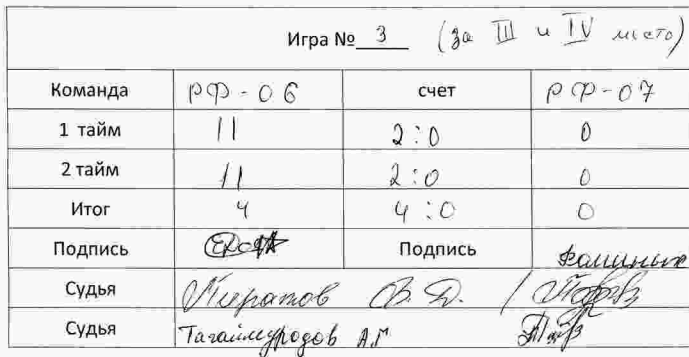 Игра № 3 (за III и IV место)
Команда РФ-06 счет РФ-07
1 тайм 11 2:0 0
2 тайм 11 2:0 0
Итог 4 4:0 0
Подпись Подпись
Судья В.Д.
Судья Тагаймуродов А.М